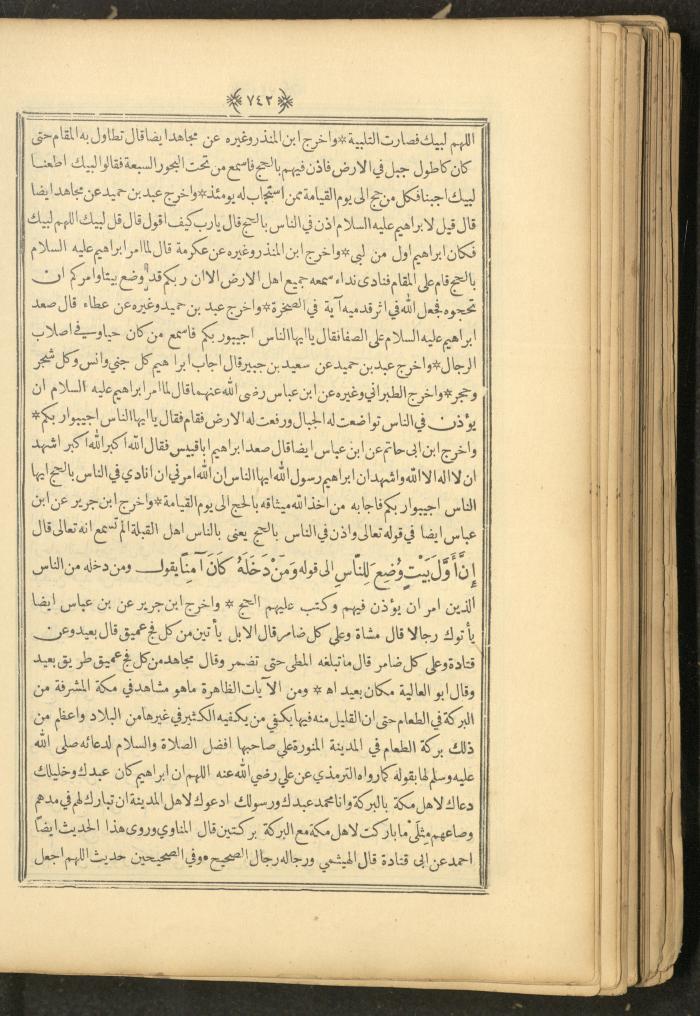 ﴿٧٤٢﴾
اللهم لبيك فصارت التلبية * واخرج ابن المنذر وغيره عن مجاهد ايضا قال تطاول به المقام حتى
كان كاطول جبل في الارض فاذن فيهم بالحج فاسمع من تحت البحور السبعة فقالوا لبيك اطعنا
لبيك اجبنا فكل من حج الى يوم القيامة ممن استجاب له يومئذ * واخرج عبد بن حميد عن مجاهد ايضا
قال قيل لابراهيم عليه السلام اذن في الناس بالحج قال يارب كيف اقول قال قل لبيك اللهم لبيك
فكان ابراهيم اول من لبى * واخرج ابن المنذر وغيره عن عكرمة قال لما امر ابراهيم عليه السلام
بالحج قام على المقام فنادى نداء سمعه جميع اهل الارض الا ان ربكم قد وضع بيتا وامركم ان
تحجوه فجعل الله في اثر قدميه آية في الصخرة * واخرج عبد بن حميد وغيره عن عطاء قال صعد
ابراهيم عليه السلام على الصفا فقال يا ايها الناس اجيبوا ربكم فاسمع من كان حيا وفي اصلاب
الرجال * واخرج عبد بن حميد عن سعيد بن جبير قال اجاب ابراهيم كل جني وانس وكل شجر
وحجر * واخرج الطبراني وغيره عن ابن عباس رضى الله عنهما قال لما امر ابراهيم عليه السلام ان
يؤذن في الناس تواضعت له الجبال ورفعت له الارض فقام فقال يا ايها الناس اجيبوا ربكم *
واخرج ابن ابى حاتم عن ابن عباس ايضا قال صعد ابراهيم ابا قبيس فقال الله اكبر الله اكبر اشهد
ان لا اله الا الله واشهد ان ابراهيم رسول الله ايها الناس ان الله امرني ان انادى في الناس بالحج ايها
الناس اجيبوا ربكم فاجابه من اخذ الله ميثاقه بالحج الى يوم القيامة * واخرج ابن جرير عن ابن
عباس ايضا في قوله تعالى واذن في الناس بالحج يعنى بالناس اهل القبلة الم تسمع انه تعالى قال
إِنَّ أَوَّلَ بَيْتٍ وُضِعَ لِلنَّاسِ الى قوله وَمَنْ دَخَلَهُ كَانَ آمِنًا يقول ومن دخله من الناس
الذين امر ان يؤذن فيهم وكتب عليهم الحج * واخرج ابن جرير عن بن عباس ايضا
يأتوك رجالا قال مشاة وعلى كل ضامر قال الابل يأتين من كل فج عميق قال بعيد وعن
قتادة وعلى كل ضامر قال ما تبلغه المطى حتى تضمر وقال مجاهد من كل فج عميق طريق بعيد
وقال ابو العالية مكان بعيد اه * ومن الآيات الظاهرة ماهو مشاهد في مكة المشرفة من
البركة في الطعام حتى ان القليل منه فيها يكفي من يكفيه الكثير في غيرها من البلاد واعظم من
ذلك بركة الطعام في المدينة المنورة على صاحبها افضل الصلاة والسلام لدعائه صلى الله
عليه وسلم لها بقوله كما رواه الترمذي عن علي رضي الله عنه اللهم ان ابراهيم كان عبدك وخليلك
دعاك لاهل مكة بالبركة وانا محمد عبدك ورسولك ادعوك لاهل المدينة ان تبارك لهم في مدهم
وصاعهم مِثْلَىْ ما باركت لاهل مكة مع البركة بركتين قال المناوي وروى هذا الحديث ايضا
احمد عن ابى قتادة قال الهيثمي ورجاله رجال الصحيح * وفي الصحيحين حديث اللهم اجعل